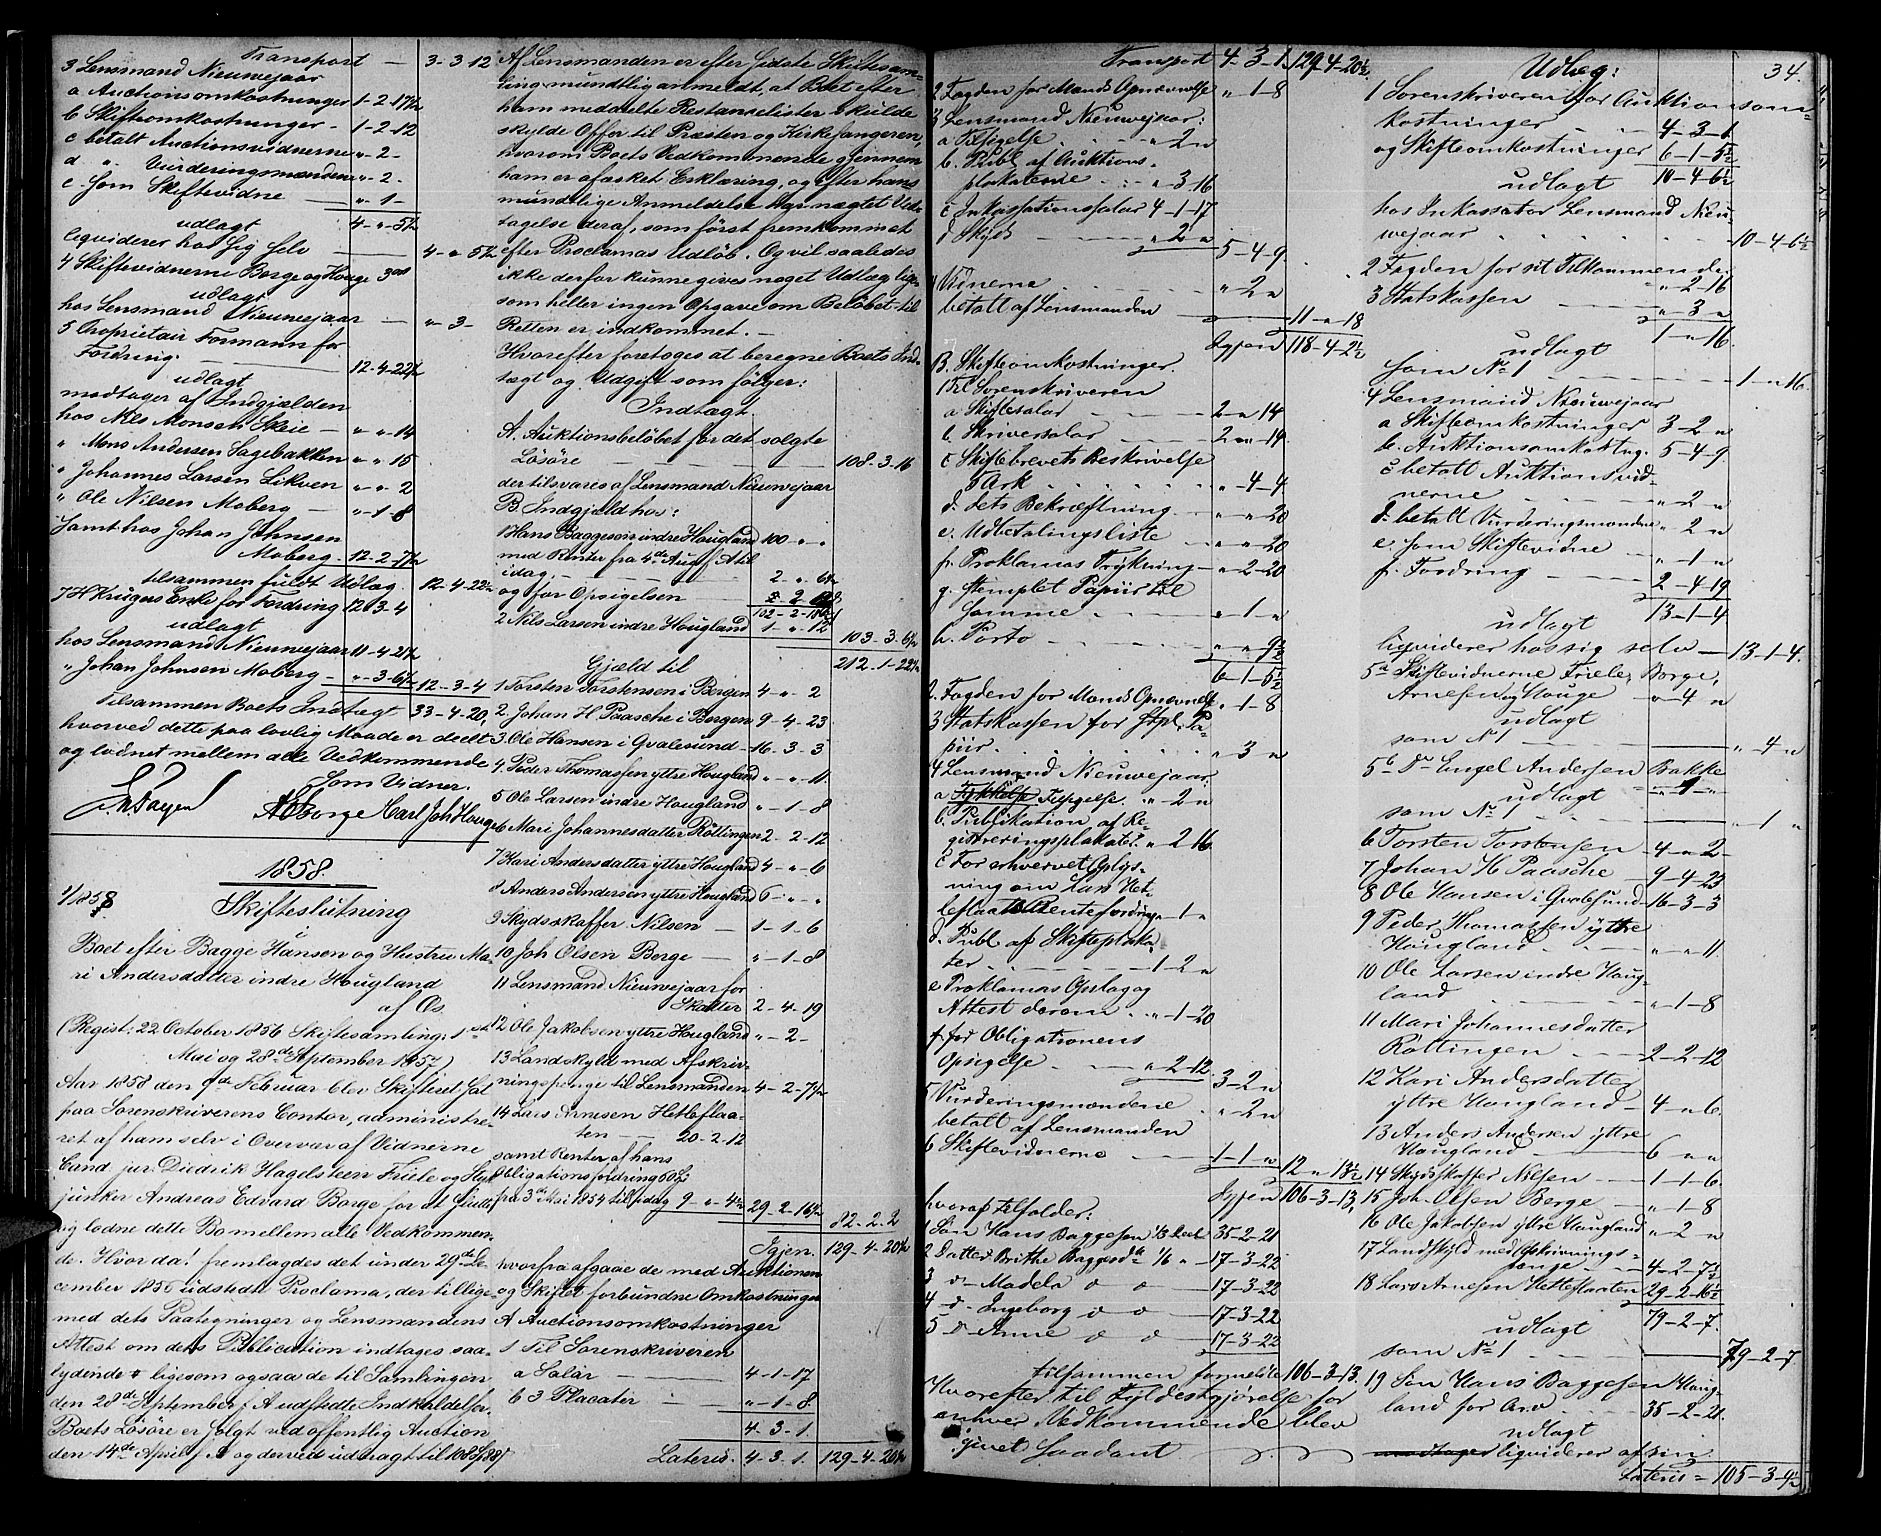 Transport — 3-3-12
3 Lensmand Nieuwejaar
a Auctionsomkostninger 1-2-17½
b Skifteomkostninger - 1-2-12
c betalt Auctionsvidnerne " - 2 -
d " Vurderingsmændene " - 2 -
e. som Skiftevidne — " - 1 -
udlagt 4-"-5½
liqviderer hos sig selv — 4-"-5½
4 Skiftevidnerne Borge og Houge 3 ort
udlagt
hos Lensmand Nieuwejaar — "-3-
5 Proprietair Formann for
Fordring. — 12-4-22½
udlagt
modtager af Indgjælden
hos Nils Monsen Skeie — " " - 14
" Mons Andersen Sagebakken " " 15
" Johannes Larsen Likven " - " - 2
" Ole Nilsen Moberg — " - 1 - 8
samt hos Johan Johnsen
Moberg. 12-2-7½
tilsammen fuldt Udlæg 12-4-22½
7 H Krugers Enke for Fordring 12-3-4
udlagt
hos Lensmand Nieuwejaar 11-4-21½
" Johan Johnsen Moberg - "-3-6½ 12-3-4
Tilsammen Boets Indtægt 33-4-20,
hvorved dette paa lovlig Maade er deelt
og lodnet mellem alle Vedkommende
Som Vidner.
AEBorge Carl Joh Houge
1858
1/1858
Skifteslutning
i
Boet efter Bagge Hansen og Hustru Ma-
ri Andersdatter indre Hougland
af Os.
(Regist: 22 October 1856 Skiftesamling: 1ste
Mai og 28de September 1857)
Aar 1858 den 9de Februar blev Skifteret sat
paa Sorenskriverens Contor, administre-
ret af ham selv i Overvær af Vidnerne
Cand. jur. Diedrik Hagelsteen Friele og
junker Andreas Edvard Borge for at slutte
og lodne dette Bo mellem alle Vedkommen-
de. Hvorda! fremlagdes det under 29de De-
cember 1856 udstedte Proclama, der tillige
med dets Paategninger og Lensmandens
Attest om dets Publication indtages saa-
lydende * ligesom ogsaa de til Samlingen
den 28de September f. A udstedte Indkaldelser.
Boets Løsøre er solgt ved offentlig Auction
den 14de April f A og derved uddragt til 108
Af Lensmanden er efter sidste Skiftesam-
ling mundtlig anmeldt, at Boet efter
ham meddelte Restanselister skulde
skylde Offer til Præsten og Kirkesangeren,
hvorom Boets Vedkommende gjennem
ham er afæsket Erklæring, og efter hans
mundtlige Anmeldelse har nægtet Ved-
tagelse deraf, som først fremkommet
efter Proclamas Udløb. Og vil saaledes
ikke derfor kunne gives noget Udlæg lige-
som heller ingen Opgave om Beløbet til
Retten er indkommet. —
Hvorefter foretoges at beregne Boets Ind-
tægt og Udgift som følger:
Indtægt
A. Auktionsbeløbet for det solgte
Løsøre — 108-3-16
der tilsvares af Lensmand Nieuwejaar
B. Indgjæld hos:
1 Hans Baggesen indre Hougland 100 " "
med Renter fra 4de Aug f A til
idag — 2 - " - 6½
og for Opsigelsen —
2 Nils Larsen indre Hougland 1-"-12 103-3-6½
212-1-22½
Gjæld til
1 Torsten Torstensen i Bergen 4-"-2
2 Johan H. Paasche i Bergen 9-4-23
3 Ole Hansen i Qvalesund - 16-3-3
4 Peder Thomassen yttre Hougland " - " - 11.
5 Ole Larsen indre Hougland " - 1 - 8
6 Mari Johannesdatter Röttingen 2-2-12
7 Kari Andersdatter yttre Hougland 4-"-6
8 Anders Andersen yttre Hougland 6-"-"
9 Skydsskaffer Nilsen — 1-1-6
10 Joh Olsen Berge — " - 1 - 8
11 Lensmand Nieuwejaar for
Skatter 2-4-19
12 Ole Jakobsen yttre Hougland " - 2 -
13 Landskyld med Afskriv-
ningspenge til Lensmanden 4-2-7½
14 Lars Arnesen Hetleflaa-
ten — 20-2-12
samt Renter af hans
Obligationsfordring 60
fra 3die Mai 1854 til idag 9-"-4½ 29-2-16½
82-2-2
Igjen. 129-4-20½
hvorfra afgaae de med Auctionen
og Skiftet forbundne Omkostninger
A Auctionsomkostninger
1 Til Sorenskriveren
a Salær — 4-1-17
b 3 Placater — "-1-8
4-3-1
Lateris. 4-3-1. 129-4-20½
Transport 4-3-1. 129-4-20½.
2 Fogden for Mands Opnævnelse " - 1 - 8
3 Lensmand Nieuwejaar:
a Tilsigelse - " 2 "
b. Publ. af Auktions-
plakaterne . . " 3-16
c Inkassationssalær 4-1-17
d Skyds — " 2 " 5-4-9
4 Vidnerne " 2 "
betalt af Lensmanden — 11-"-18
Igjen 118-4-2½
B. Skifteomkostninger.
1 Til Sorenskriveren
a Skiftesalær 2 " 14
b. Skriversalær 2 " 14
c Skiftebrevets Beskrivelse
5 Ark " - 4 - 4
d. dets Bekræftning — " - " - 20
e. Udbetalingsliste " - " - 20
f. Proklamas Trykning " - 2 - 20
g. Stemplet Papiir til
samme " - 1 - "
h. Porto " " 9½
6-1-5½
2. Fogden for Mands Opnævnelse " - 1 - 8
3 Statskassen for Stpl. Pa-
piir " 3 "
4 Lensmand Nieuwejaar:
a Tilsigelse. " 2 "
b. Publikation af Re-
gistreringsplakater " 2-16.
c For erhvervet Oplys-
ning om Lars Het-
leflaatens Rentefordring " 1 "
d. Publ af Skifteplaka-
ter 1-2 "
e Proklamas Opslag og
Attest derom . " 1-20
f. for Obligationens
Opsigelse " 2-12 3-2 "
5 Vurderingsmændene " 2 "
betalt af Lensmanden
6 Skiftevidnerne 1-1 "
12 " 13½
Igjen 106-3-13.
hvoraf tilfalder:
1 Søn Hans Baggesen 1/3 Deel 35-2-21
2 Datter Brithe Baggesdr 1/6 " 17-3-22
3 do Madela do do 17-3-22
4 do Ingeborg do do 17-3-22
5 do Anne do do 17-3-22
tilsammen formelite 106-3-13.
Hvorefter til Fyldestgjørelse for
enhver Vedkommende blev
givet Saadant
34.
Udlæg:
1 Sorenskriveren for Auktionsom-
kostninger 4-3-1
og Skifteomkostninger 6-1-5½
udlagt 10-4-6½
hos Inkassator Lensmand Nieu-
wejaar 10-4-6½
2 Fogden for sit Tilkommende " 2-16
3 Statskassen " 3 "
udlagt 1 " 16
som No 1 1 " 16.
4 Lensmand Nieuwejaar
a Skifteomkostninger 3-2 "
b. Auktionsomkostng. 5-4-9
c betalt Auktionsvid-
nerne " 2 "
d. betalt Vurderingsmændene " 2 "
e. som Skiftevidne " 1 "
f. Fordring — 2-4-19
13-1-4
udlagt
liqviderer hos sig selv — 13-1-4.
5a Skiftevidnerne Friele, Borge,
Arnesen og Houge " 4 "
udlagt
som No 1 " 4 "
5b Do Engel Andersen Bakke
udlagt " 1 "
som No 1 " 1 "
6 Torsten Torstensen — 4 " 2
7 Johan H Paasche - 9-4-23
8 Ole Hansen i Qvalesund 16-3-3
9 Peder Thomassen yttre
Hougland " " 11
10 Ole Larsen indre Houg-
land " 1-8
11 Mari Johannesdatter
Röttingen 2-2-12
12 Kari Andersdatter
yttre Hougland 4 " 6.
13 Anders Andersen yttre
Hougland — 6 " "
14 Skydsskaffer Nilsen 1-1-6.
15 Joh. Olsen Berge — " 1-8
16 Ole Jakobsen yttre Hougland " 2 "
17 Landskyld med Afskrivnings-
penge 4-2-7½
18 Lars Arnesen Hetleflaaten 29-2-16½
79-2-7.
udlagt
som No 1 79-2-7
19 Søn Hans Baggesen Houg-
land for Arv 35-2-21.
udlagt
liqviderer af sin
Lateris = 105-3-9½